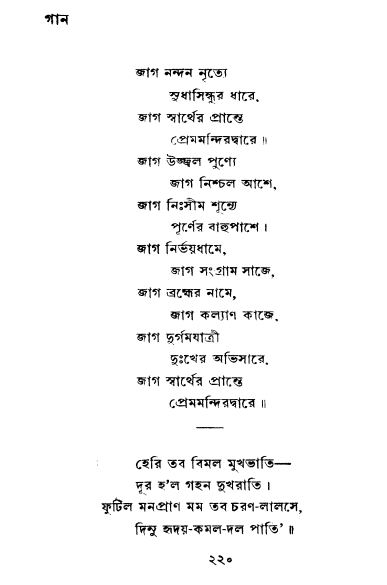 গান
জাগ নন্দন নৃত্যে
সুধাসিন্ধুর ধারে,
জাগ স্বার্থের প্রান্তে
প্রেমমন্দিরদ্বারে॥
জাগ উজ্জ্বল পুণ্যে
জাগ নিশ্চল আশে,
জাগ নিঃসীম শূন্যে
পূর্ণের বাহুপাশে।
জাগ নির্ভয়ধামে,
জাগ সংগ্রাম সাজে,
জাগ ব্রহ্মের নামে,
জাগ কল্যাণ কাজে,
জাগ দুর্গমযাত্রী
দুঃখের অভিসারে,
জাগ স্বার্থের প্রান্তে
প্রেমমন্দিরদ্বারে॥
হেরি তব বিমল মুখভাতি—
দূর হ'ল গহন দুখরাতি।
ফুটিল মনপ্রাণ মম তব চরণ-লালসে,
দিনু হৃদয়-কমল-দল পাতি'॥
২২০